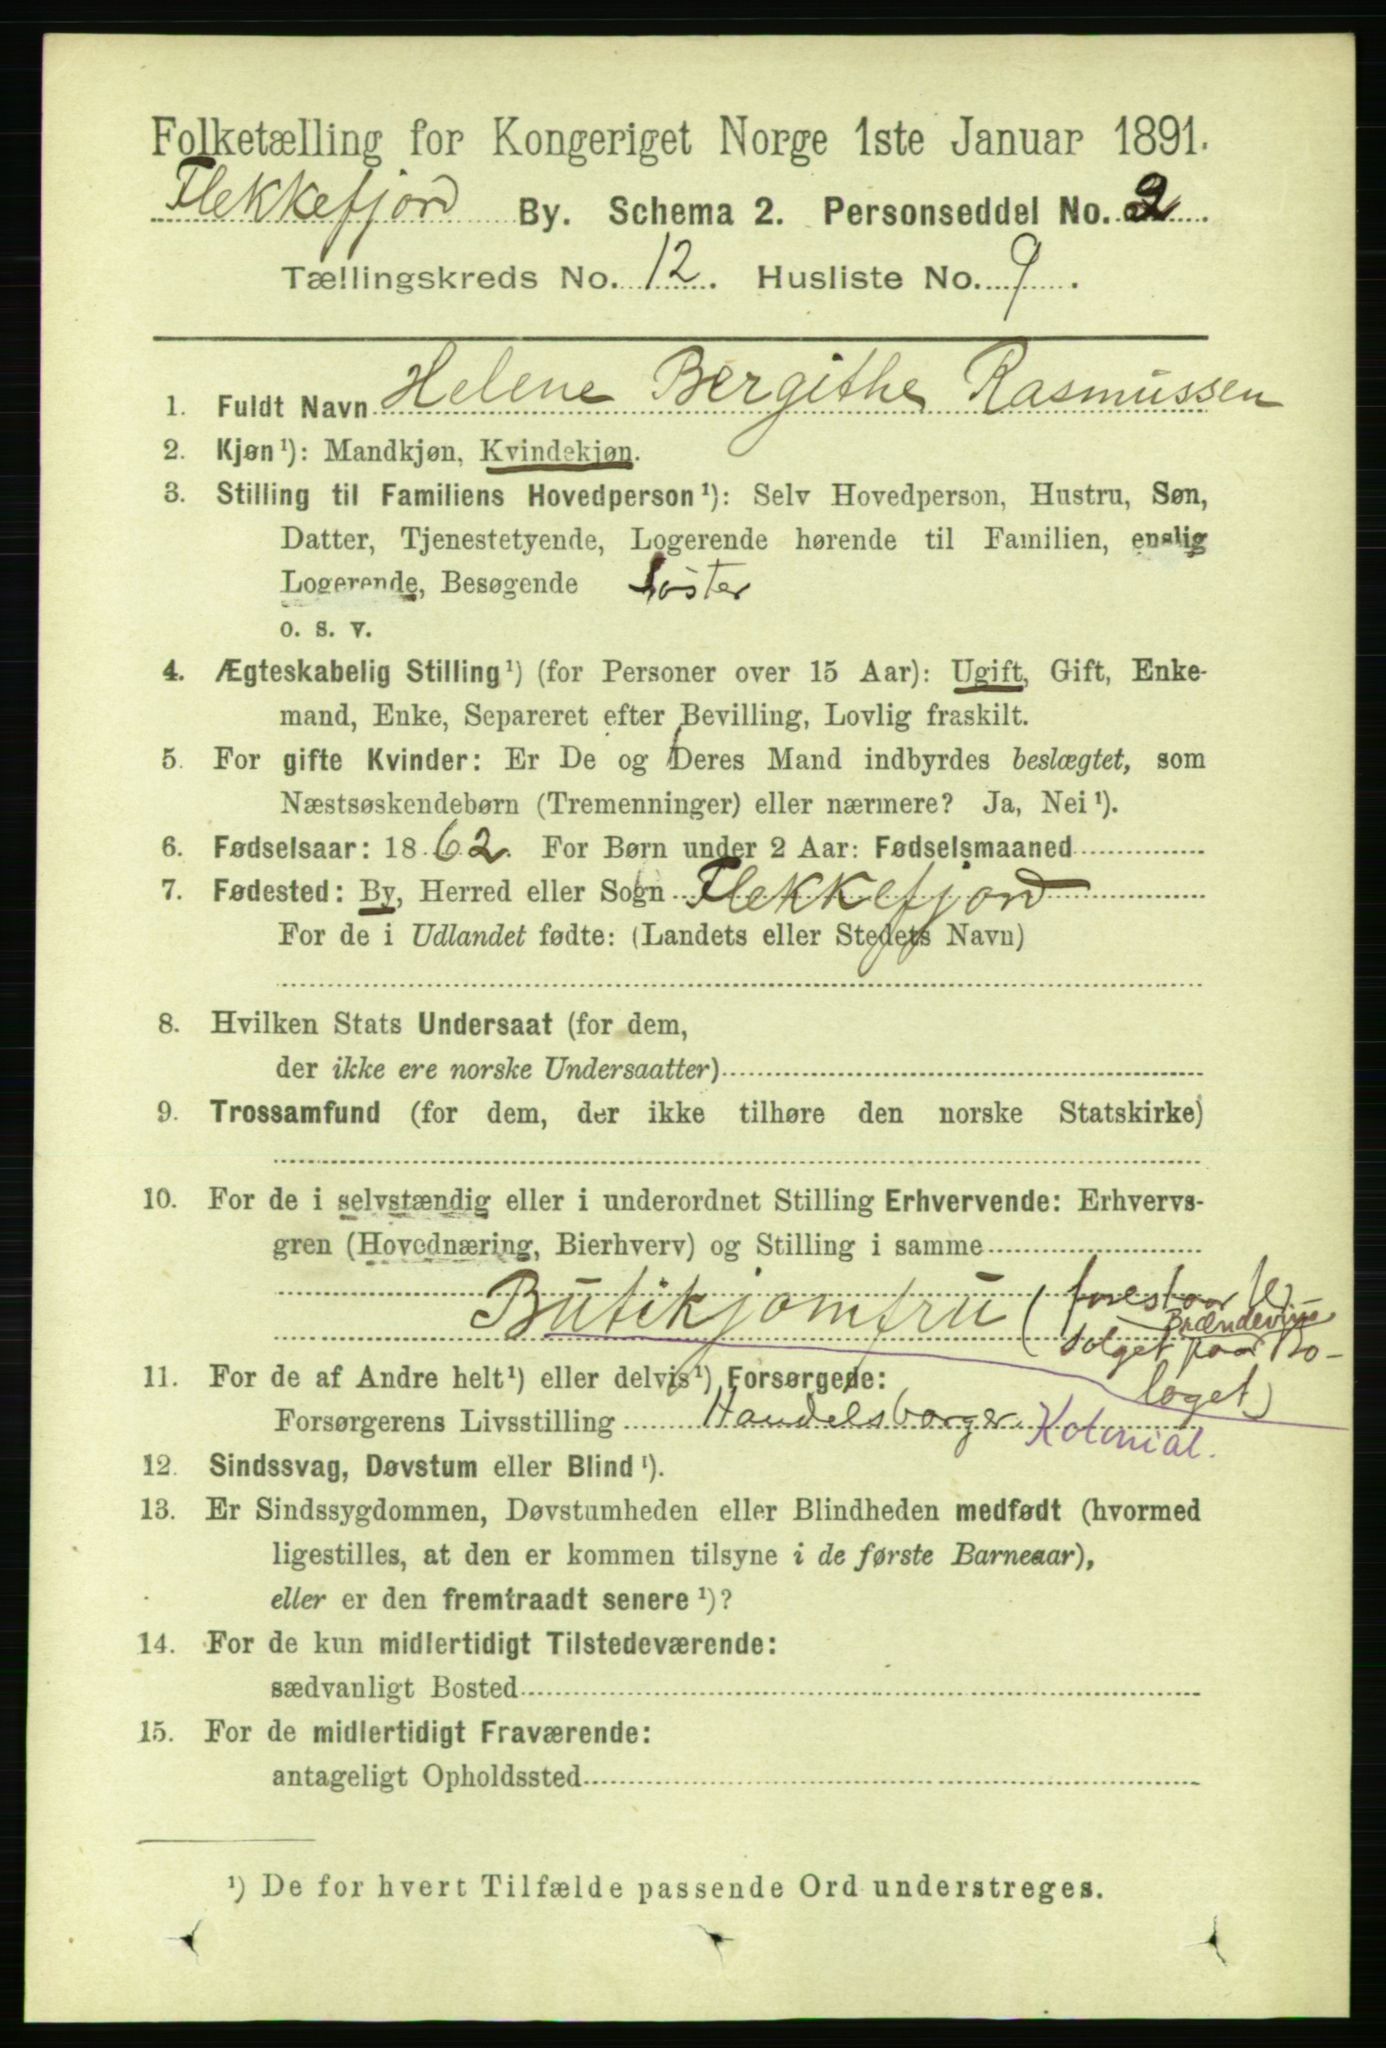 Folketælling for Kongeriget Norge 1ste Januar 1891.
Flekkefjord By. Schema 2. Personseddel No. 2.
Tællingskreds No. 12. Husliste No. 9.
1. Fuldt Navn Helene Bergithe Rasmussen
2. Kjøn¹): Mandkjøn, Kvindekjøn.
3. Stilling til Familiens Hovedperson¹): Selv Hovedperson, Hustru, Søn,
Datter, Tjenestetyende, Logerende hørende til Familien, enslig
Logerende, Besøgende Søster
o. s. v.
4. Ægteskabelig Stilling¹) (for Personer over 15 Aar): Ugift, Gift, Enke-
mand, Enke, Separeret efter Bevilling, Lovlig fraskilt.
5. For gifte Kvinder: Er De og Deres Mand indbyrdes beslægtet, som
Næstsøskendebørn (Tremenninger) eller nærmere? Ja, Nei¹).
6. Fødselsaar: 1862. For Børn under 2 Aar: Fødselsmaaned
7. Fødested: By, Herred eller Sogn Flekkefjord
For de i Udlandet fødte: (Landets eller Stedets Navn)
8. Hvilken Stats Undersaat (for dem,
der ikke ere norske Undersaatter)
9. Trossamfund (for dem, der ikke tilhøre den norske Statskirke)
10. For de i selvstændig eller i underordnet Stilling Erhvervende: Erhvervs-
gren (Hovednæring, Bierhverv) og Stilling i samme
Butikjomfru (forestaar
Brændevins
Solget paa Bo-
laget)
11. For de af Andre helt¹) eller delvis¹) Forsørgede:
Forsørgerens Livsstilling Handelsborger. Kolonial.
12. Sindssvag, Døvstum eller Blind¹).
13. Er Sindssygdommen, Døvstumheden eller Blindheden medfødt (hvormed
ligestilles, at den er kommen tilsyne i de første Barneaar),
eller er den fremtraadt senere¹)?
14. For de kun midlertidigt Tilstedeværende:
sædvanligt Bosted
15. For de midlertidigt Fraværende:
antageligt Opholdssted
¹) De for hvert Tilfælde passende Ord understreges.